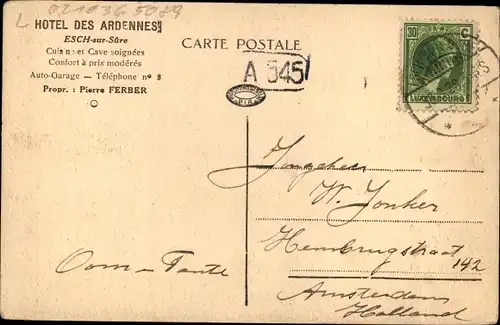 L 021036 5089
HOTEL DES ARDENNES
ESCH-sur-Sûre
Cuisine et Cave soignées
Confort à prix modérés
Auto-Garage — Téléphone nº 8
Propr. : Pierre FERBER
CARTE POSTALE
A 545
30 C
LUXEMBOURG
Jongeheer
W. Jonker
Hembrugstraat
142
Amsterdam
Holland
Oom – Tante